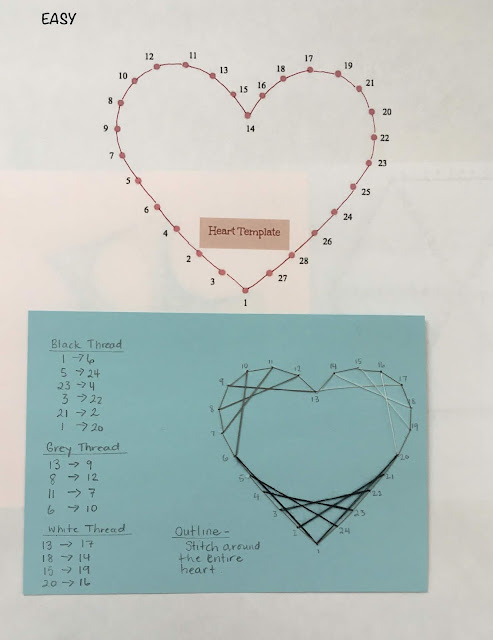 EASY
12 11 17
18 19
10 13
15 16 21
8 20
9 14 22
7 23
5 25
6 24
4 26
Heart Template
2 28
3 27
1
Black Thread
1 → 6
5 → 24
23 → 4
3 → 22
21 → 2
1 → 20
Grey Thread
13 → 9
8 → 12
11 → 7
6 → 10
White Thread
13 → 17
18 → 14
15 → 19
20 → 16
Outline -
Stitch around
the entire
heart
10 11 12 14 15 16
9 13 17
8 18
7 19
6 20
5 21
4 22
3 23
2 24
1